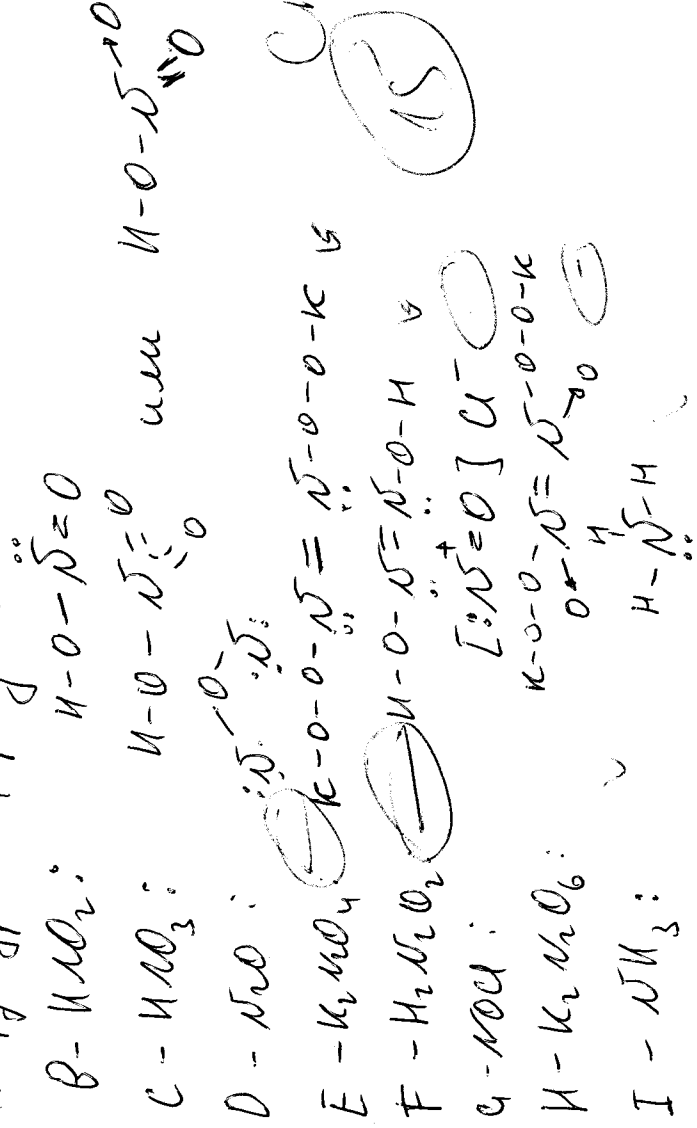 B - HNO₂: H-O-N̈=O
C - HNO₃: H-O-N=O O или H-O-N→O =O
D - N₂O:
E - K₂N₂O₄ K-O-O-N̈=N̈-O-O-K
F - H₂N₂O₂ H-O-N̈=N̈-O-H
G - NOCl: [:N⁺=O] Cl⁻
H - K₂N₂O₆: K-O-O-N=N-O-O-K O← →O
I - NH₃: H-N̈-H H
15